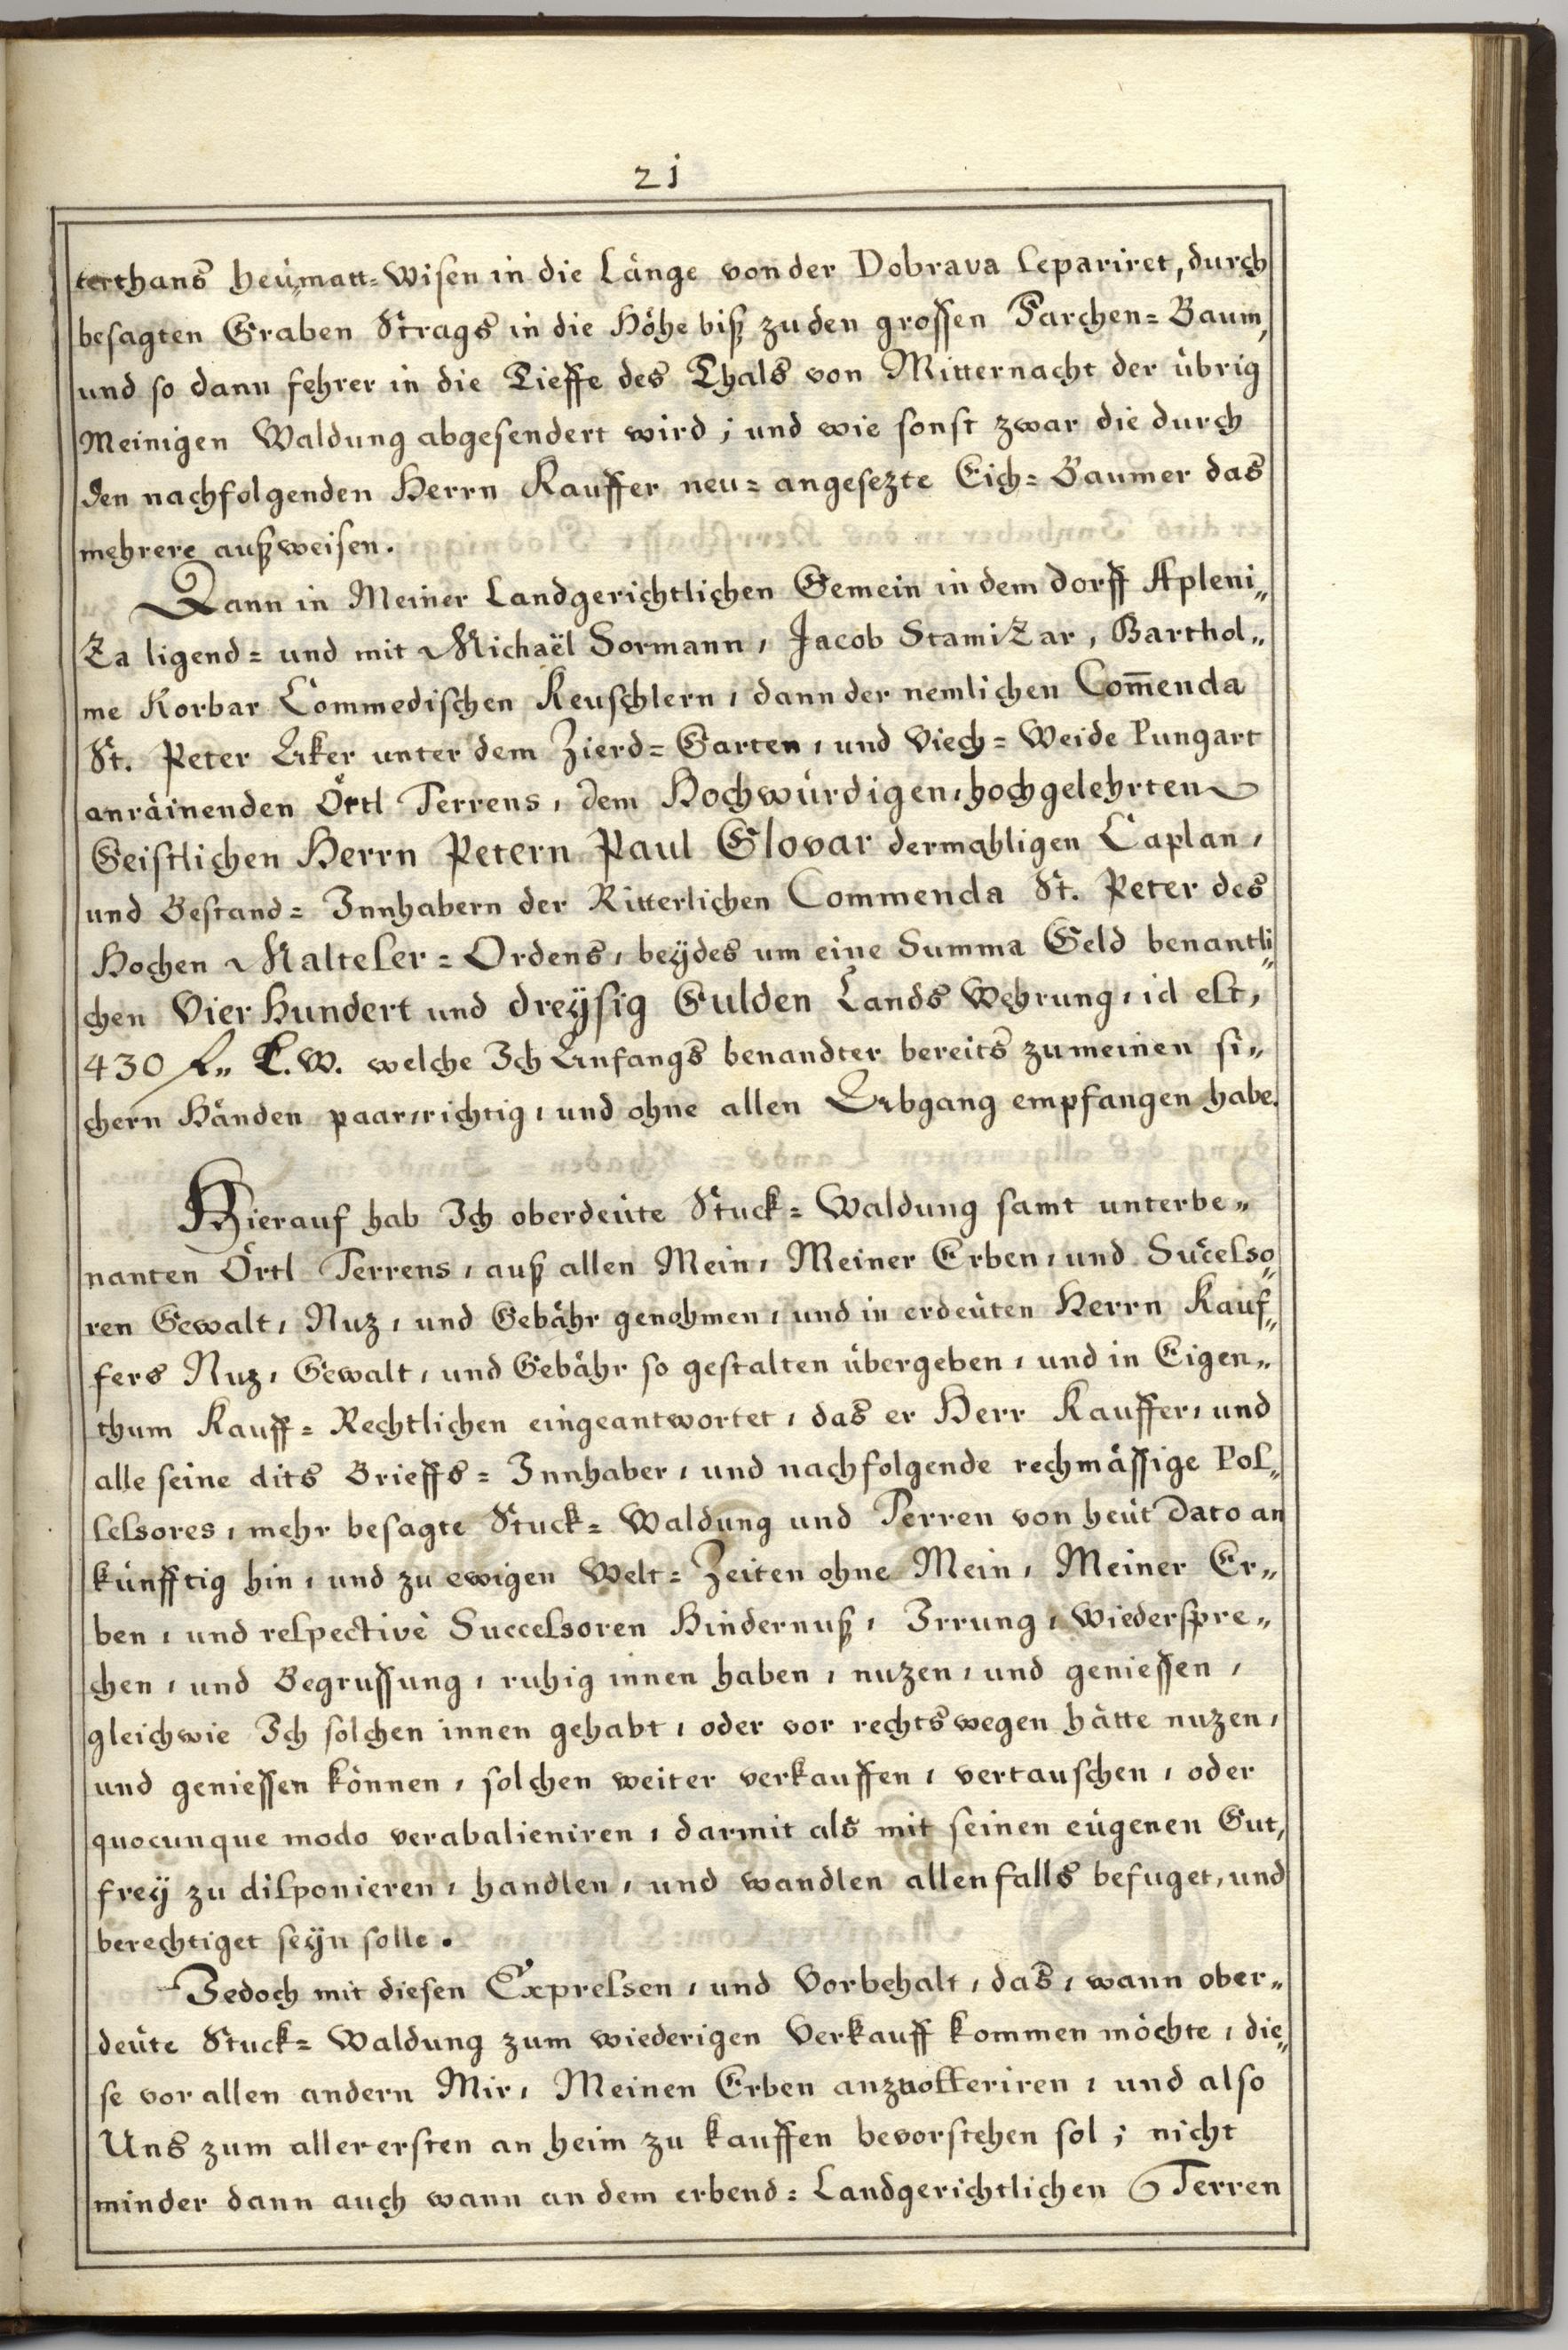 21
terthans heü„matt=Wisen in die Länge von der Dobrava separiret, durch
besagten Graben Strags in die Höhe biß zu den grossen Farchen=Baum,
und so dann fehrer in die Tieffe des Thals von Mitternacht der übrig
Meinigen Waldung abgesendert wird; und wie sonst zwar die durch
den nachfolgenden Herrn Kauffer neu=angesezte Eich=Baumer das
mehrere außweisen.
Dann in Meiner Landgerichtlichen Gemein in dem dorff Apleni„
Za ligend= und mit Michaël Sormann, Jacob StamiZar, Barthol„
me Korbar Commedischen Keuschlern, dann der nemlichen Com̄enda
St. Peter Aker unter dem Zierd=Garten, und Viech=Weide Pungart
anräinenden Örtl Terrens, dem Hochwürdigen, hochgelehrten
Geistlichen Herrn Petern Paul Glovar dermahligen Caplan,
und Bestand=Innhabern der Ritterlichen Commenda St. Peter des
Hochen Malteser=Ordens, beÿdes um eine Summa Geld benantli„
chen Vier Hundert und dreÿsig Gulden Lands Wehrung, id est,
430 f„ L.W. welche Ich Anfangs benandter bereits zu meinen si„
chern Händen paar, richtig, und ohne allen Abgang empfangen habe.
Hierauf hab Ich oberdeüte Stuck=Waldung samt unterbe„
nanten Örtl Terrens, auß allen Mein, Meiner Erben, und Sucesso„
ren Gewalt, Nuz, und Gebähr genohmen, und in erdeüten Herrn Kauf„
fers Nuz, Gewalt, und Gebähr so gestalten übergeben, und in Eigen„
thum Kauff=Rechtlichen eingeantwortet, das er Herr Kauffer, und
alle seine dits Brieffs=Innhaber, und nachfolgende rechmässige Pos„
sessores, mehr besagte Stuck=Waldung und Terren von heüt Dato an
künfftig hin, und zu ewigen Welt=Zeiten ohne Mein, Meiner Er„
ben, und respectivè Successoren Hindernuß, Irrung, Wiederspre„
chen, und Begrussung, ruhig innen haben, nuzen, und geniessen,
gleichwie Ich solchen innen gehabt, oder vor rechtswegen hätte nuzen,
und geniessen können, solchen weiter verkauffen, vertauschen, oder
quocunque modo verabalieniren, darmit als mit seinen eügenen Gut,
freÿ zu disponieren, handlen, und wandlen allenfalls befuget, und
berechtiget seÿn solle.
Jedoch mit diesen Expressen, und Vorbehalt, das, wann ober„
deüte Stuck=Waldung zum wiederigen Verkauff kommen möchte, die„
se vor allen andern Mir, Meinen Erben anzuofferiren, und also
Uns zum allerersten an heim zu kauffen bevorstehen sol; nicht
minder dann auch wann an dem erbend=Landgerichtlichen Terren